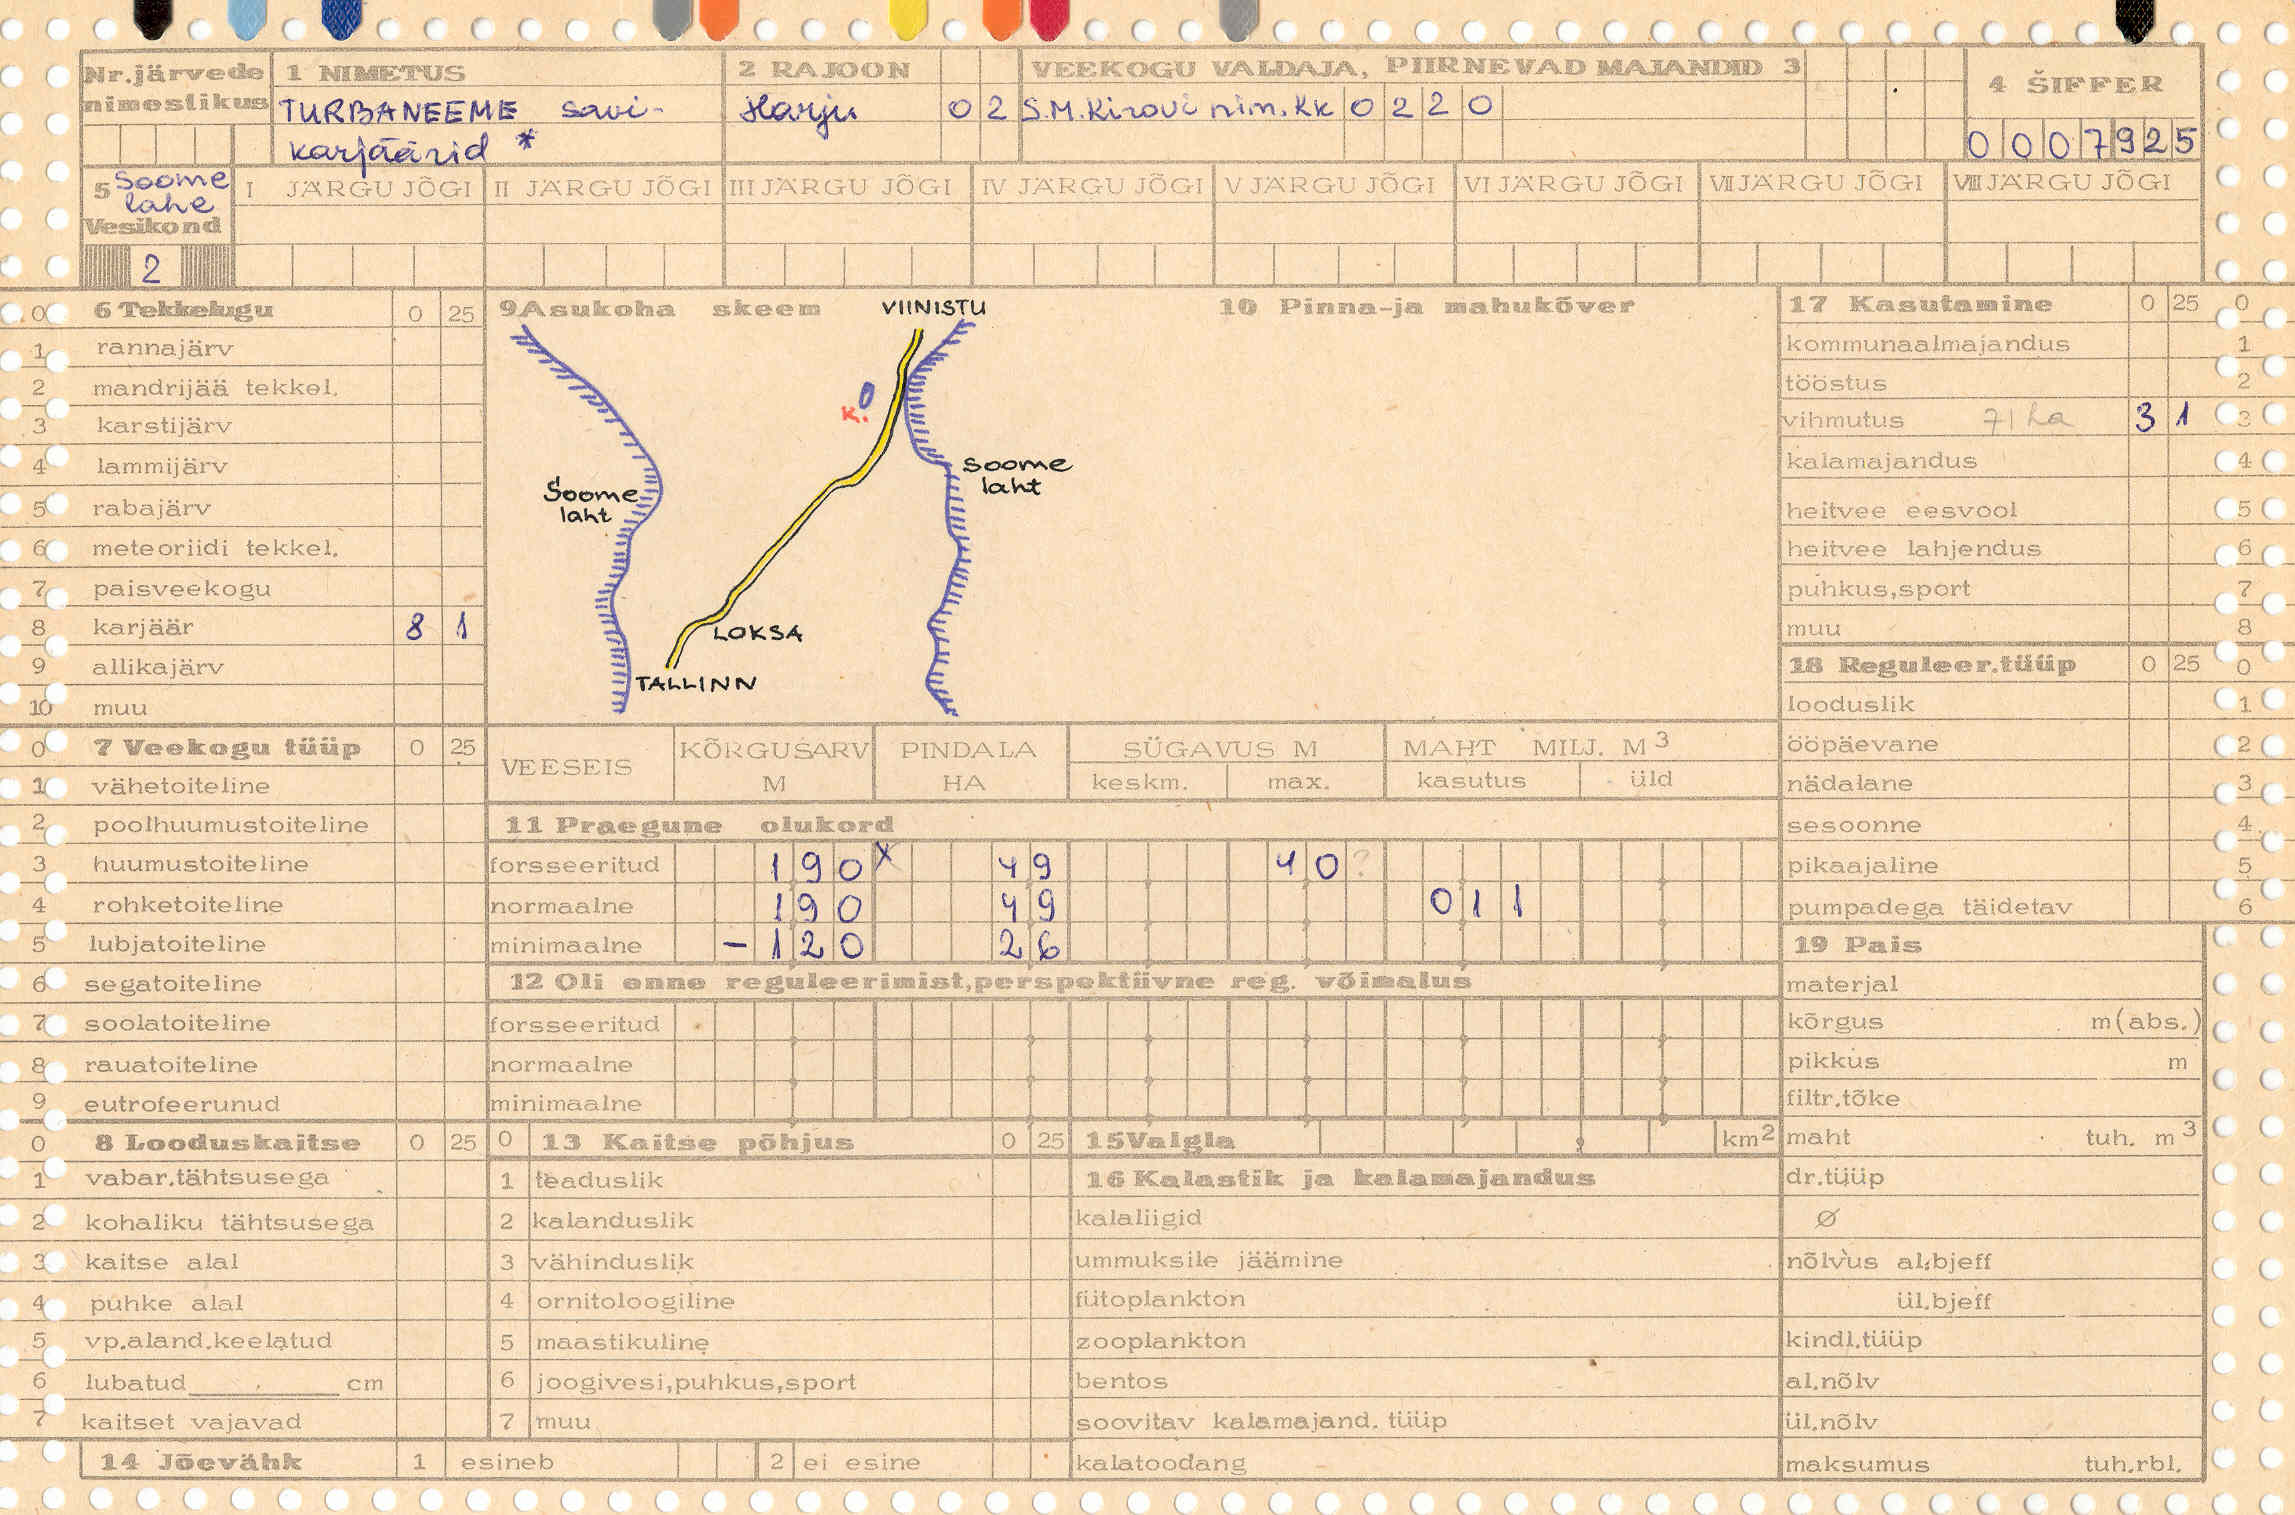 Nr.järvede nimestikus
1 NIMETUS
TURBANEEME savi-
karjäärid *
2 RAJOON
Harju 0 2
VEEKOGU VALDAJA, PIIRNEVAD MAJANDID 3
S.M.Kirovi nim.Kk 0 2 2 0
4 ŠIFFER
0 0 0 7 9 2 5
5 Soome lahe
Vesikond
2
I JÄRGU JÕGI II JÄRGU JÕGI III JÄRGU JÕGI IV JÄRGU JÕGI V JÄRGU JÕGI VI JÄRGU JÕGI VII JÄRGU JÕGI VIII JÄRGU JÕGI
0 6 Tekkelugu 0 25
1 rannajärv
2 mandrijää tekkel.
3 karstijärv
4 lammijärv
5 rabajärv
6 meteoriidi tekkel.
7 paisveekogu
8 karjäär 8 1
9 allikajärv
10 muu
0 7 Veekogu tüüp 0 25
1 vähetoiteline
2 poolhuumustoiteline
3 huumustoiteline
4 rohketoiteline
5 lubjatoiteline
6 segatoiteline
7 soolatoiteline
8 rauatoiteline
9 eutrofeerunud
0 8 Looduskaitse 0 25
1 vabar.tähtsusega
2 kohaliku tähtsusega
3 kaitse alal
4 puhke alal
5 vp.aland.keelatud
6 lubatud cm
7 kaitset vajavad
14 Jõevähk 1 esineb 2 ei esine
9 Asukoha skeem
VIINISTU
K.
Soome
laht
Soome
laht
LOKSA
TALLINN
10 Pinna-ja mahukõver
VEESEIS
KÕRGUSARV M
PINDALA HA
SÜGAVUS M
keskm. max.
MAHT MILJ. M3
kasutus üld
11 Praegune olukord
forsseeritud 1 9 0 x 4 9 4 0 ?
normaalne 1 9 0 4 9 0 1 1
minimaalne - 1 2 0 2 6
12 Oli enne reguleerimist,perspektiivne reg. võimalus
forsseeritud
normaalne
minimaalne
0 13 Kaitse põhjus 0 25
1 teaduslik
2 kalanduslik
3 vähinduslik
4 ornitoloogiline
5 maastikuline
6 joogivesi,puhkus,sport
7 muu
15 Valgla , km2
16 Kalastik ja kalamajandus
kalaliigid
ummuksile jäämine
fütoplankton
zooplankton
bentos
soovitav kalamajand. tüüp
kalatoodang
17 Kasutamine 0 25 0
kommunaalmajandus 1
tööstus 2
vihmutus 71 ha 3 1 3
kalamajandus 4
heitvee eesvool 5
heitvee lahjendus 6
puhkus,sport 7
muu 8
18 Reguleer.tüüp 0 25 0
looduslik 1
ööpäevane 2
nädalane 3
sesoonne 4
pikaajaline 5
pumpadega täidetav 6
19 Pais
materjal
kõrgus m(abs.)
pikkus m
filtr.tõke
maht tuh. m3
dr.tüüp
Ø
nõlvus al.bjeff
ül.bjeff
kindl.tüüp
al.nõlv
ül.nõlv
maksumus tuh.rbl.